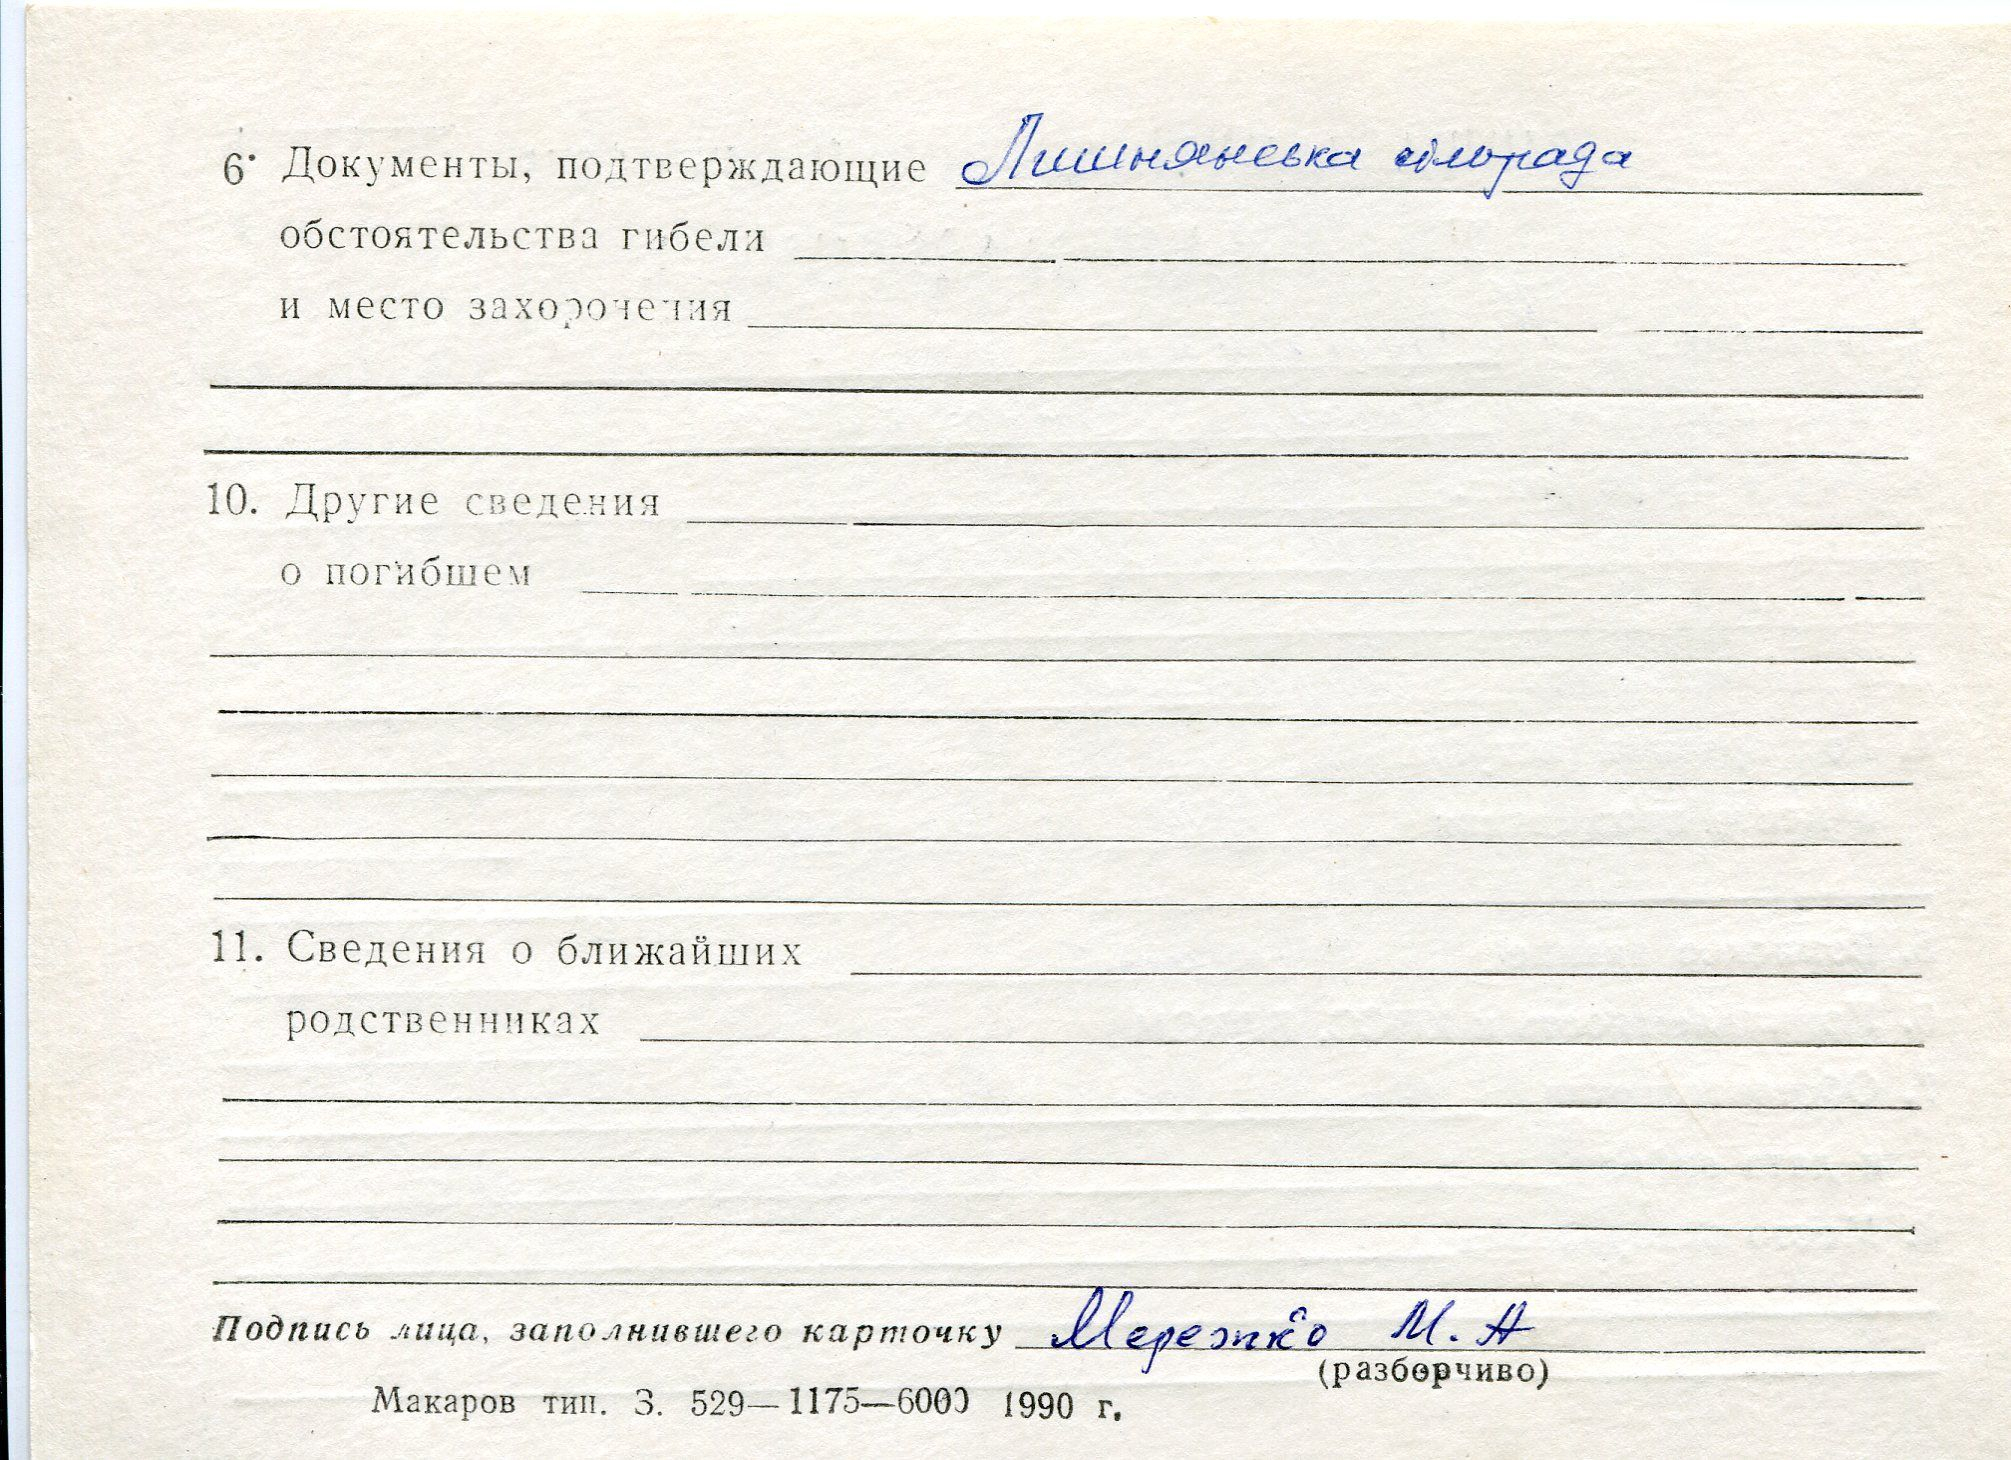 6. Документы, подтверждающие Лишнянська сільрада
обстоятельства гибели
и место захоронения
10. Другие сведения
о погибшем
11. Сведения о ближайших
родственниках
Подпись лица, заполнившего карточку Мережко М. А
(разборчиво)
Макаров тип. З. 529—1175—6000 1990 г.